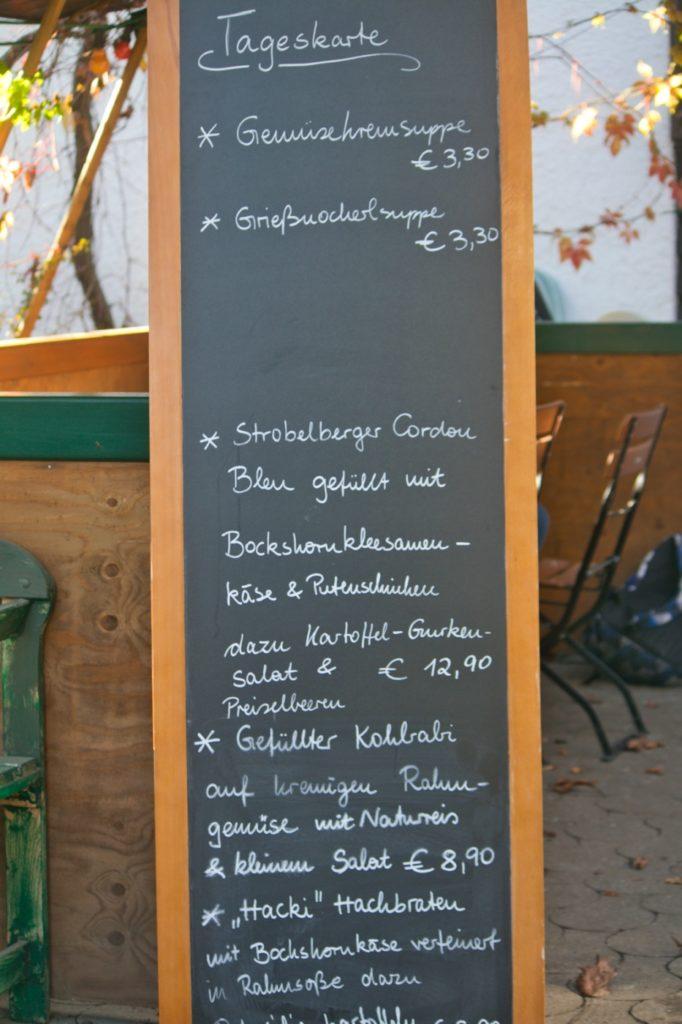 Tageskarte
* Gemüsekremsuppe
€ 3,30
* Grießnockerlsuppe
€ 3,30
* Strobelberger Cordon
Bleu gefüllt mit
Bockshornkleesamen-
käse & Putenschinken
dazu Kartoffel-Gurken-
salat & € 12,90
Preiselbeeren
* Gefüllter Kohlrabi
auf kremigen Rahm-
gemüse mit Naturreis
& kleinem Salat € 8,90
* „Hacki" Hackbraten
mit Bockshornkäse verfeinert
in Rahmsoße dazu